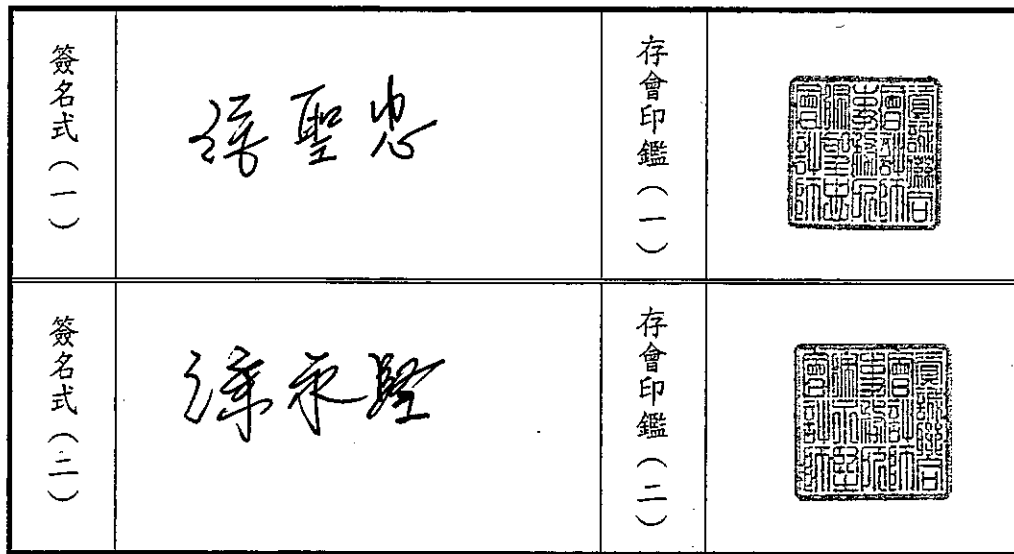 簽名式（一）
徐聖忠
存會印鑑（一）
資誠聯合
會計師
事務所
徐聖忠
會計師
簽名式（二）
徐永堅
存會印鑑（二）
資誠聯合
會計師
事務所
徐永堅
會計師